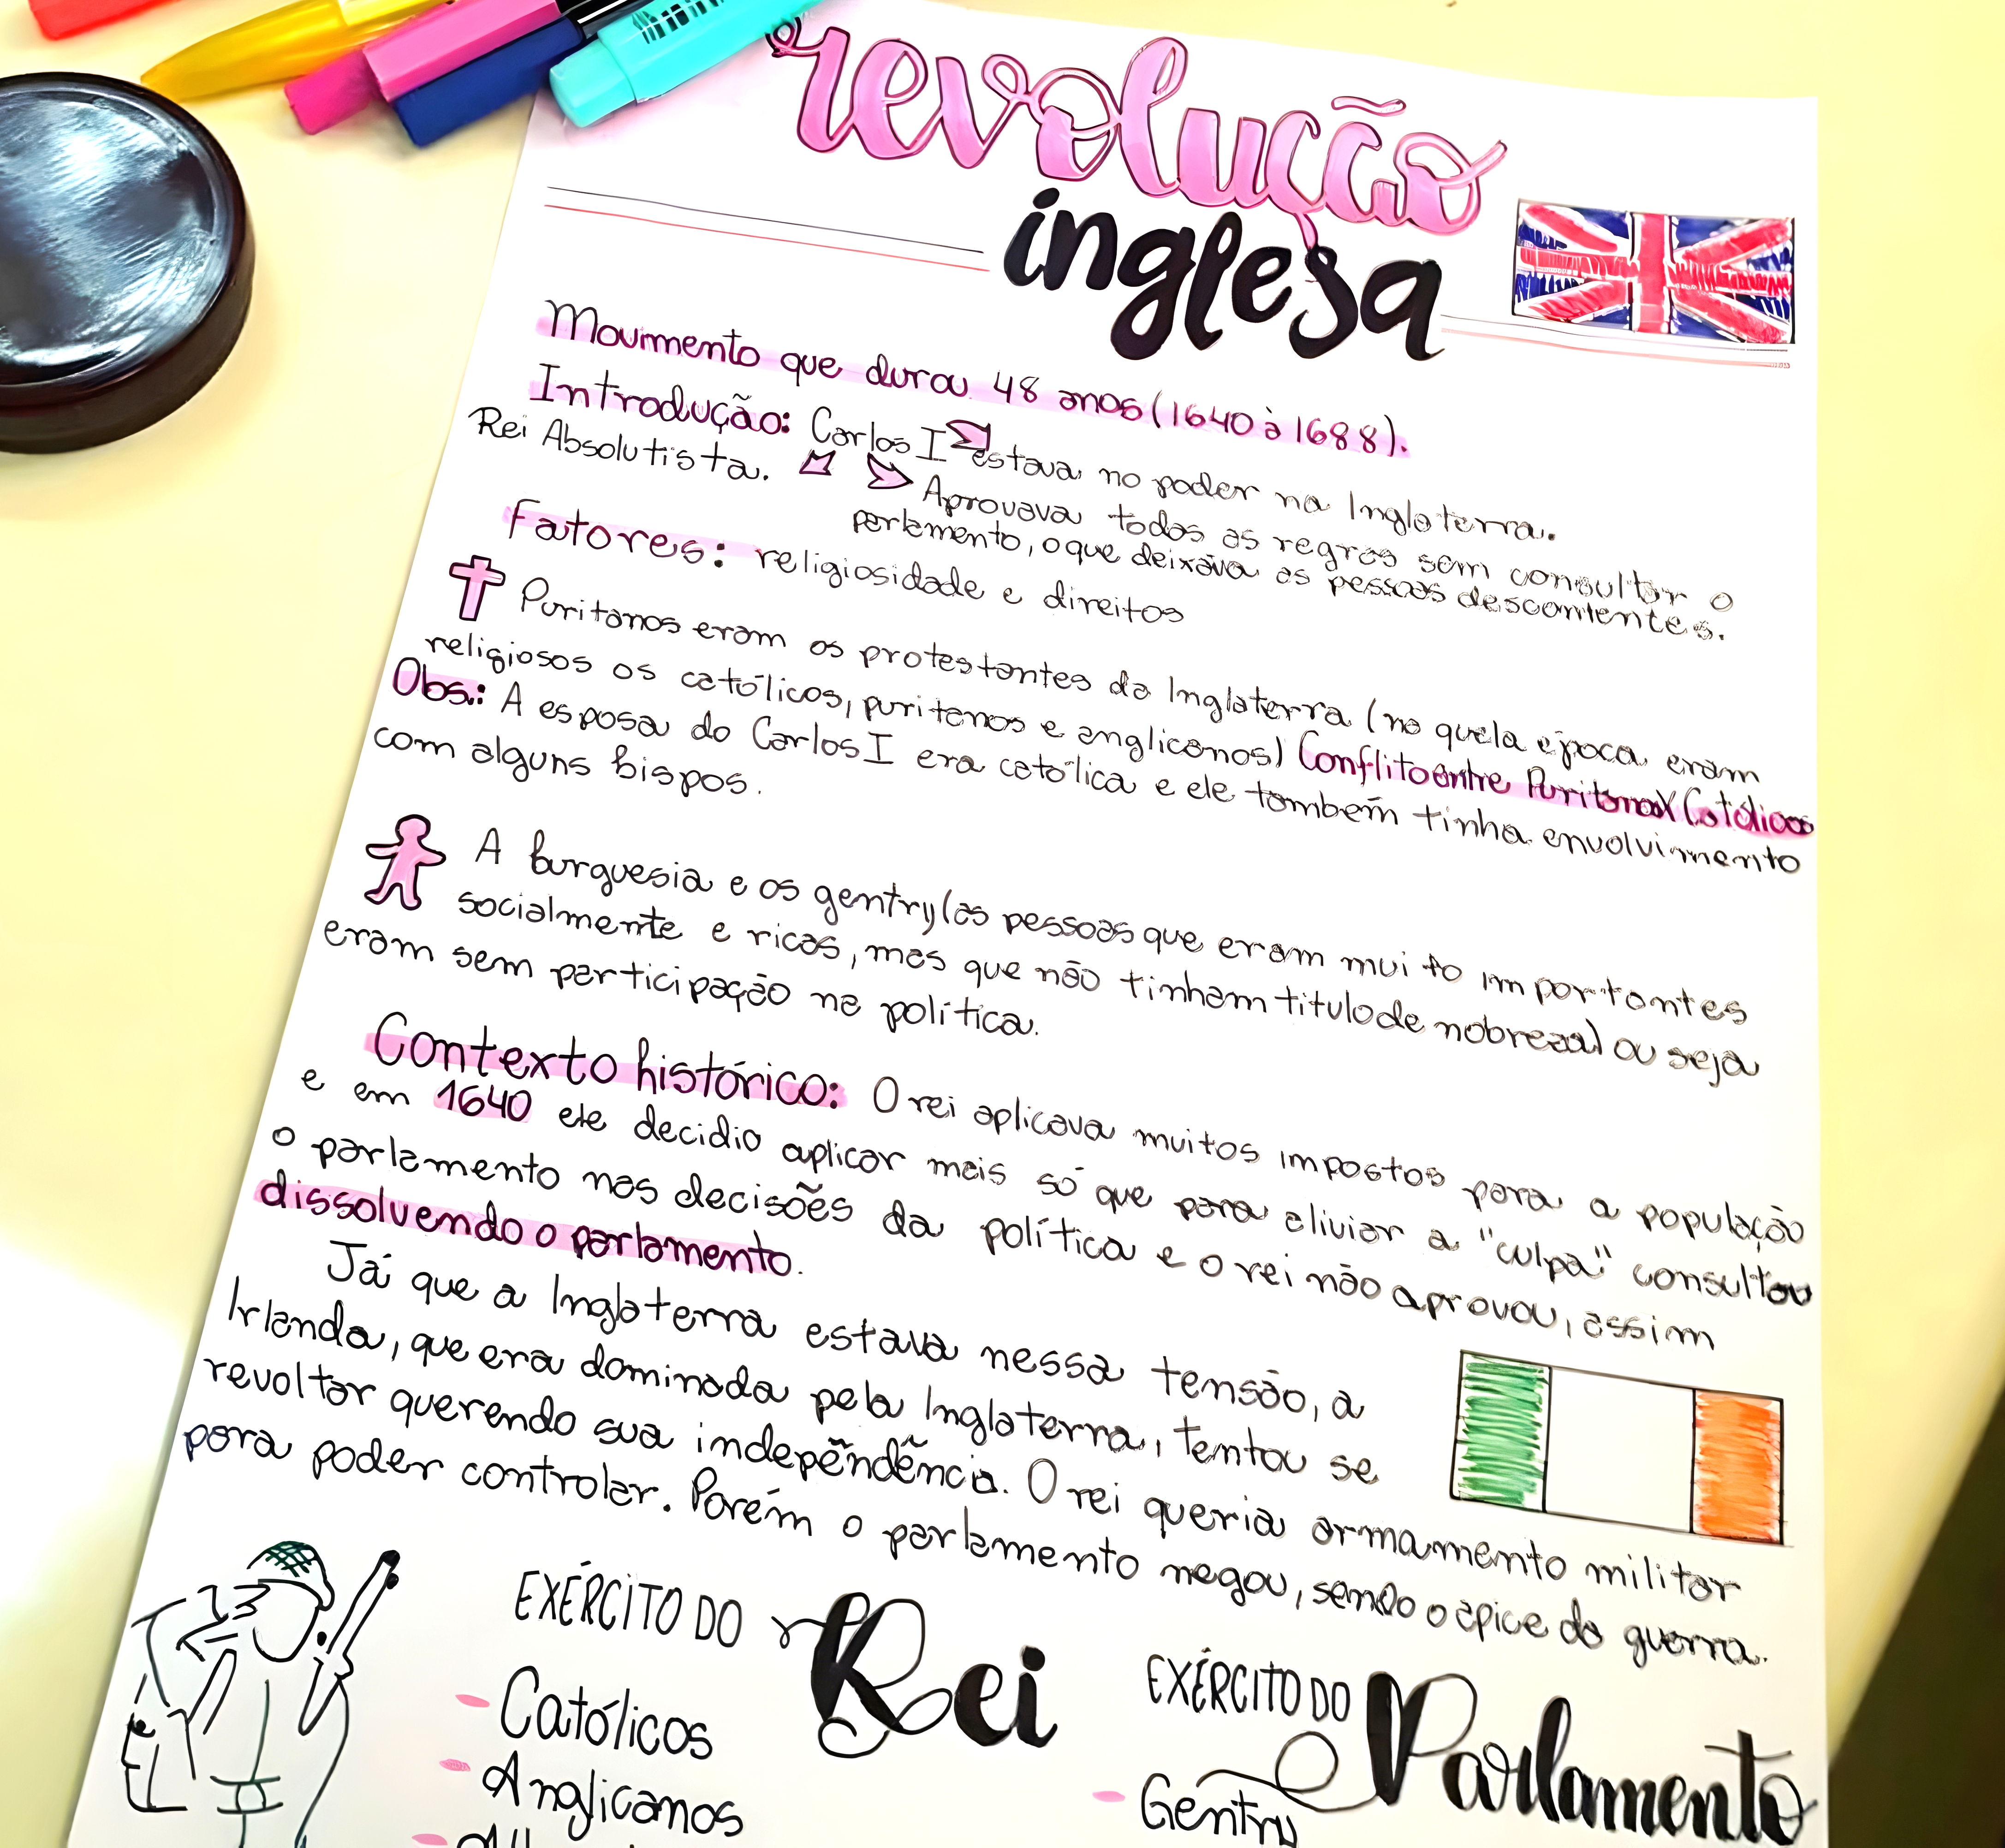 revolução
inglesa
Movimento que durou 48 anos (1640 à 1688).
Introdução: Carlos I estava no poder na Inglaterra.
Rei Absolutista. Aprovava todas as regras sem consultar o
parlamento, o que deixava as pessoas descontentes.
Fatores: religiosidade e direitos
Puritanos eram os protestantes da Inglaterra (na quela época eram
religiosos os católicos, puritanos e anglicanos) Conflito entre Puritanos X Católicos
Obs.: A esposa do Carlos I era católica e ele também tinha envolvimento
com alguns bispos.
A burguesia e os gentry (as pessoas que eram muito importantes
socialmente e ricas, mas que não tinham titulo de nobreza) ou seja
eram sem participação na política.
Contexto histórico: O rei aplicava muitos impostos para a população
e em 1640 ele decidio aplicar mais só que para aliviar a "culpa" consultou
o parlamento nas decisões da política e o rei não aprovou, assim
dissolvendo o parlamento.
Já que a Inglaterra estava nessa tensão, a
Irlanda, que era dominada pela Inglaterra, tentou se
revoltar querendo sua indepêndência. O rei queria armamento militar
para poder controlar. Porém o parlamento negou, sendo o ápice da guerra.
EXÉRCITO DO Rei
- Católicos
- Anglicanos
EXÉRCITO DO Parlamento
- Gentry